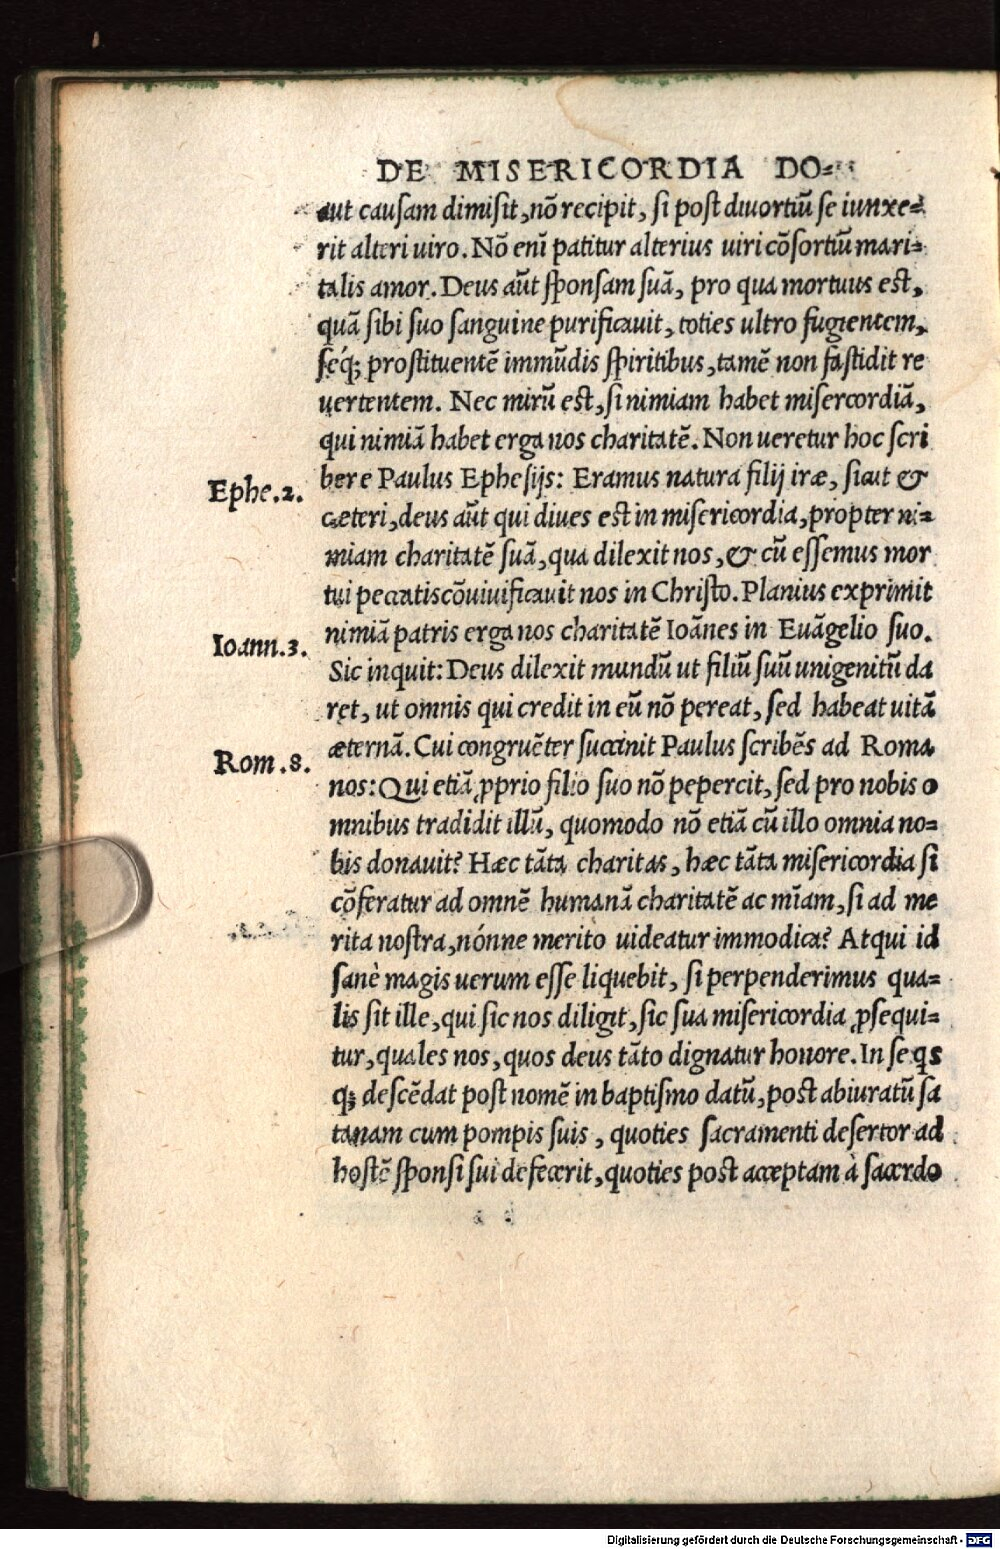 DE MISERICORDIA DO-
aut causam dimisit, nõ recipit, si post diuortiũ se iunxe-
rit alteri uiro. Nõ enĩ patitur alterius uiri cõsortiũ mari-
talis amor. Deus aũt sponsam suã, pro qua mortuus est,
quã sibi suo sanguine purificauit, toties ultro fugientem,
seq́; prostituentẽ immũdis spiritibus, tamẽ non fastidit re
uertentem. Nec mirũ est, si nimiam habet misercordiã,
qui nimiã habet erga nos charitatẽ. Non ueretur hoc scri
bere Paulus Ephesijs: Eramus natura filij iræ, sicut &
Ephe.2.
cæteri, deus aũt qui diues est in misericordia, propter ni-
miam charitatẽ suã, qua dilexit nos, & cũ essemus mor
tui peccatis cõuiuificauit nos in Christo. Planius exprimit
nimiã patris erga nos charitatẽ Ioãnes in Euãgelio suo.
Ioann.3.
Sic inquit: Deus dilexit mundũ ut filiũ suũ unigenitũ da
ret, ut omnis qui credit in eũ nõ pereat, sed habeat uitã
æternã. Cui congruẽter succinit Paulus scribẽs ad Roma
Rom.8.
nos: Qui etiã ꝓprio filio suo nõ pepercit, sed pro nobis o
mnibus tradidit illũ, quomodo nõ etiã cũ illo omnia no-
bis donauit? Hæc tãta charitas, hæc tãta misericordia si
cõferatur ad omnẽ humanã charitatẽ ac mĩam, si ad me
rita nostra, nónne merito uideatur immodica? Atqui id
sanè magis uerum esse liquebit, si perpenderimus qua-
lis sit ille, qui sic nos diligit, sic sua misericordia ꝓsequi-
tur, quales nos, quos deus tãto dignatur honore. In se qs
q; descẽdat post nomẽ in baptismo datũ, post abiuratũ sa
tanam cum pompis suis, quoties sacramenti desertor ad
hostẽ sponsi sui defecerit, quoties post acceptam à sacerdo
Digitalisierung gefördert durch die Deutsche Forschungsgemeinschaft - DFG